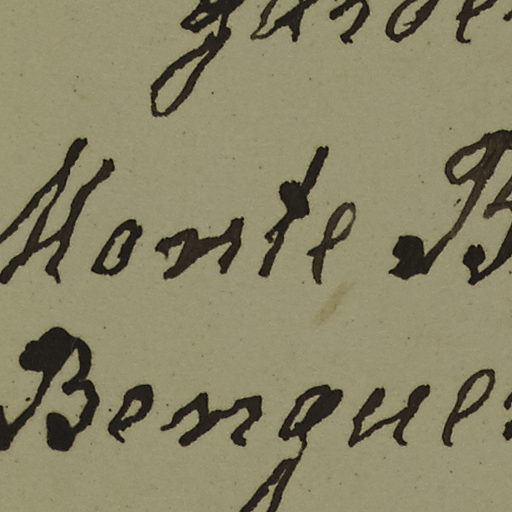 Monte B
Bengue